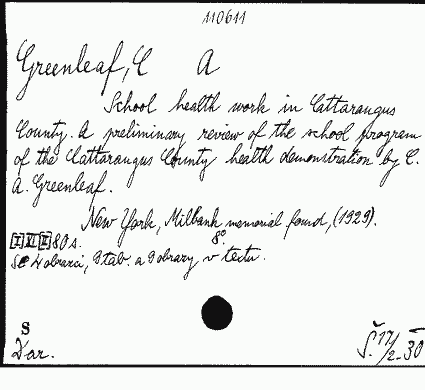 110611
Greenleaf, C A
School health work in Cattaraugus
County. A preliminary review of the school program
of the Cattaraugus County health demonstration by C.
A. Greenleaf.
New York, Milbank memorial found, (1929).
8°.
80 s.
v textu.
S
Dar.
Š. 17/2-30